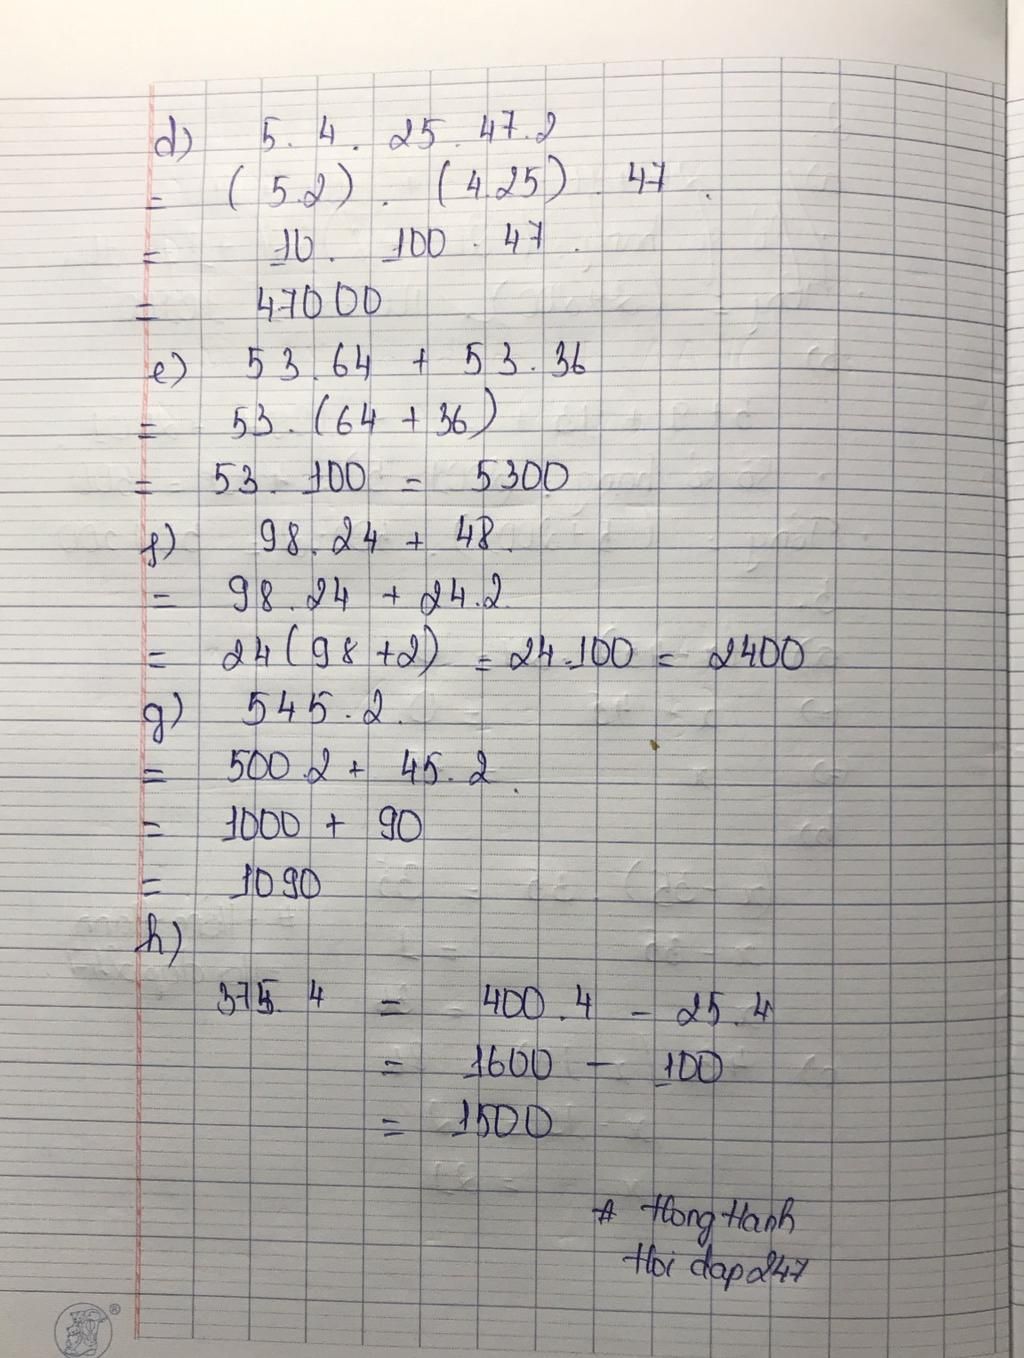 d) 5. 4. 25. 47. 2
= (5.2) . (4.25) . 47.
= 10. 100. 47.
= 47000
e) 53.64 + 53.36
= 53.(64 + 36)
= 53. 100 = 5300
f) 98.24 + 48.
= 98.24 + 24.2
= 24(98+2) = 24.100 = 2400
g) 545.2.
= 500.2 + 45.2.
= 1000 + 90
= 1090
h)
375. 4 = 400.4 - 25.4
= 1600 - 100
= 1500
# Hong Hanh
Hoi dap 247
®